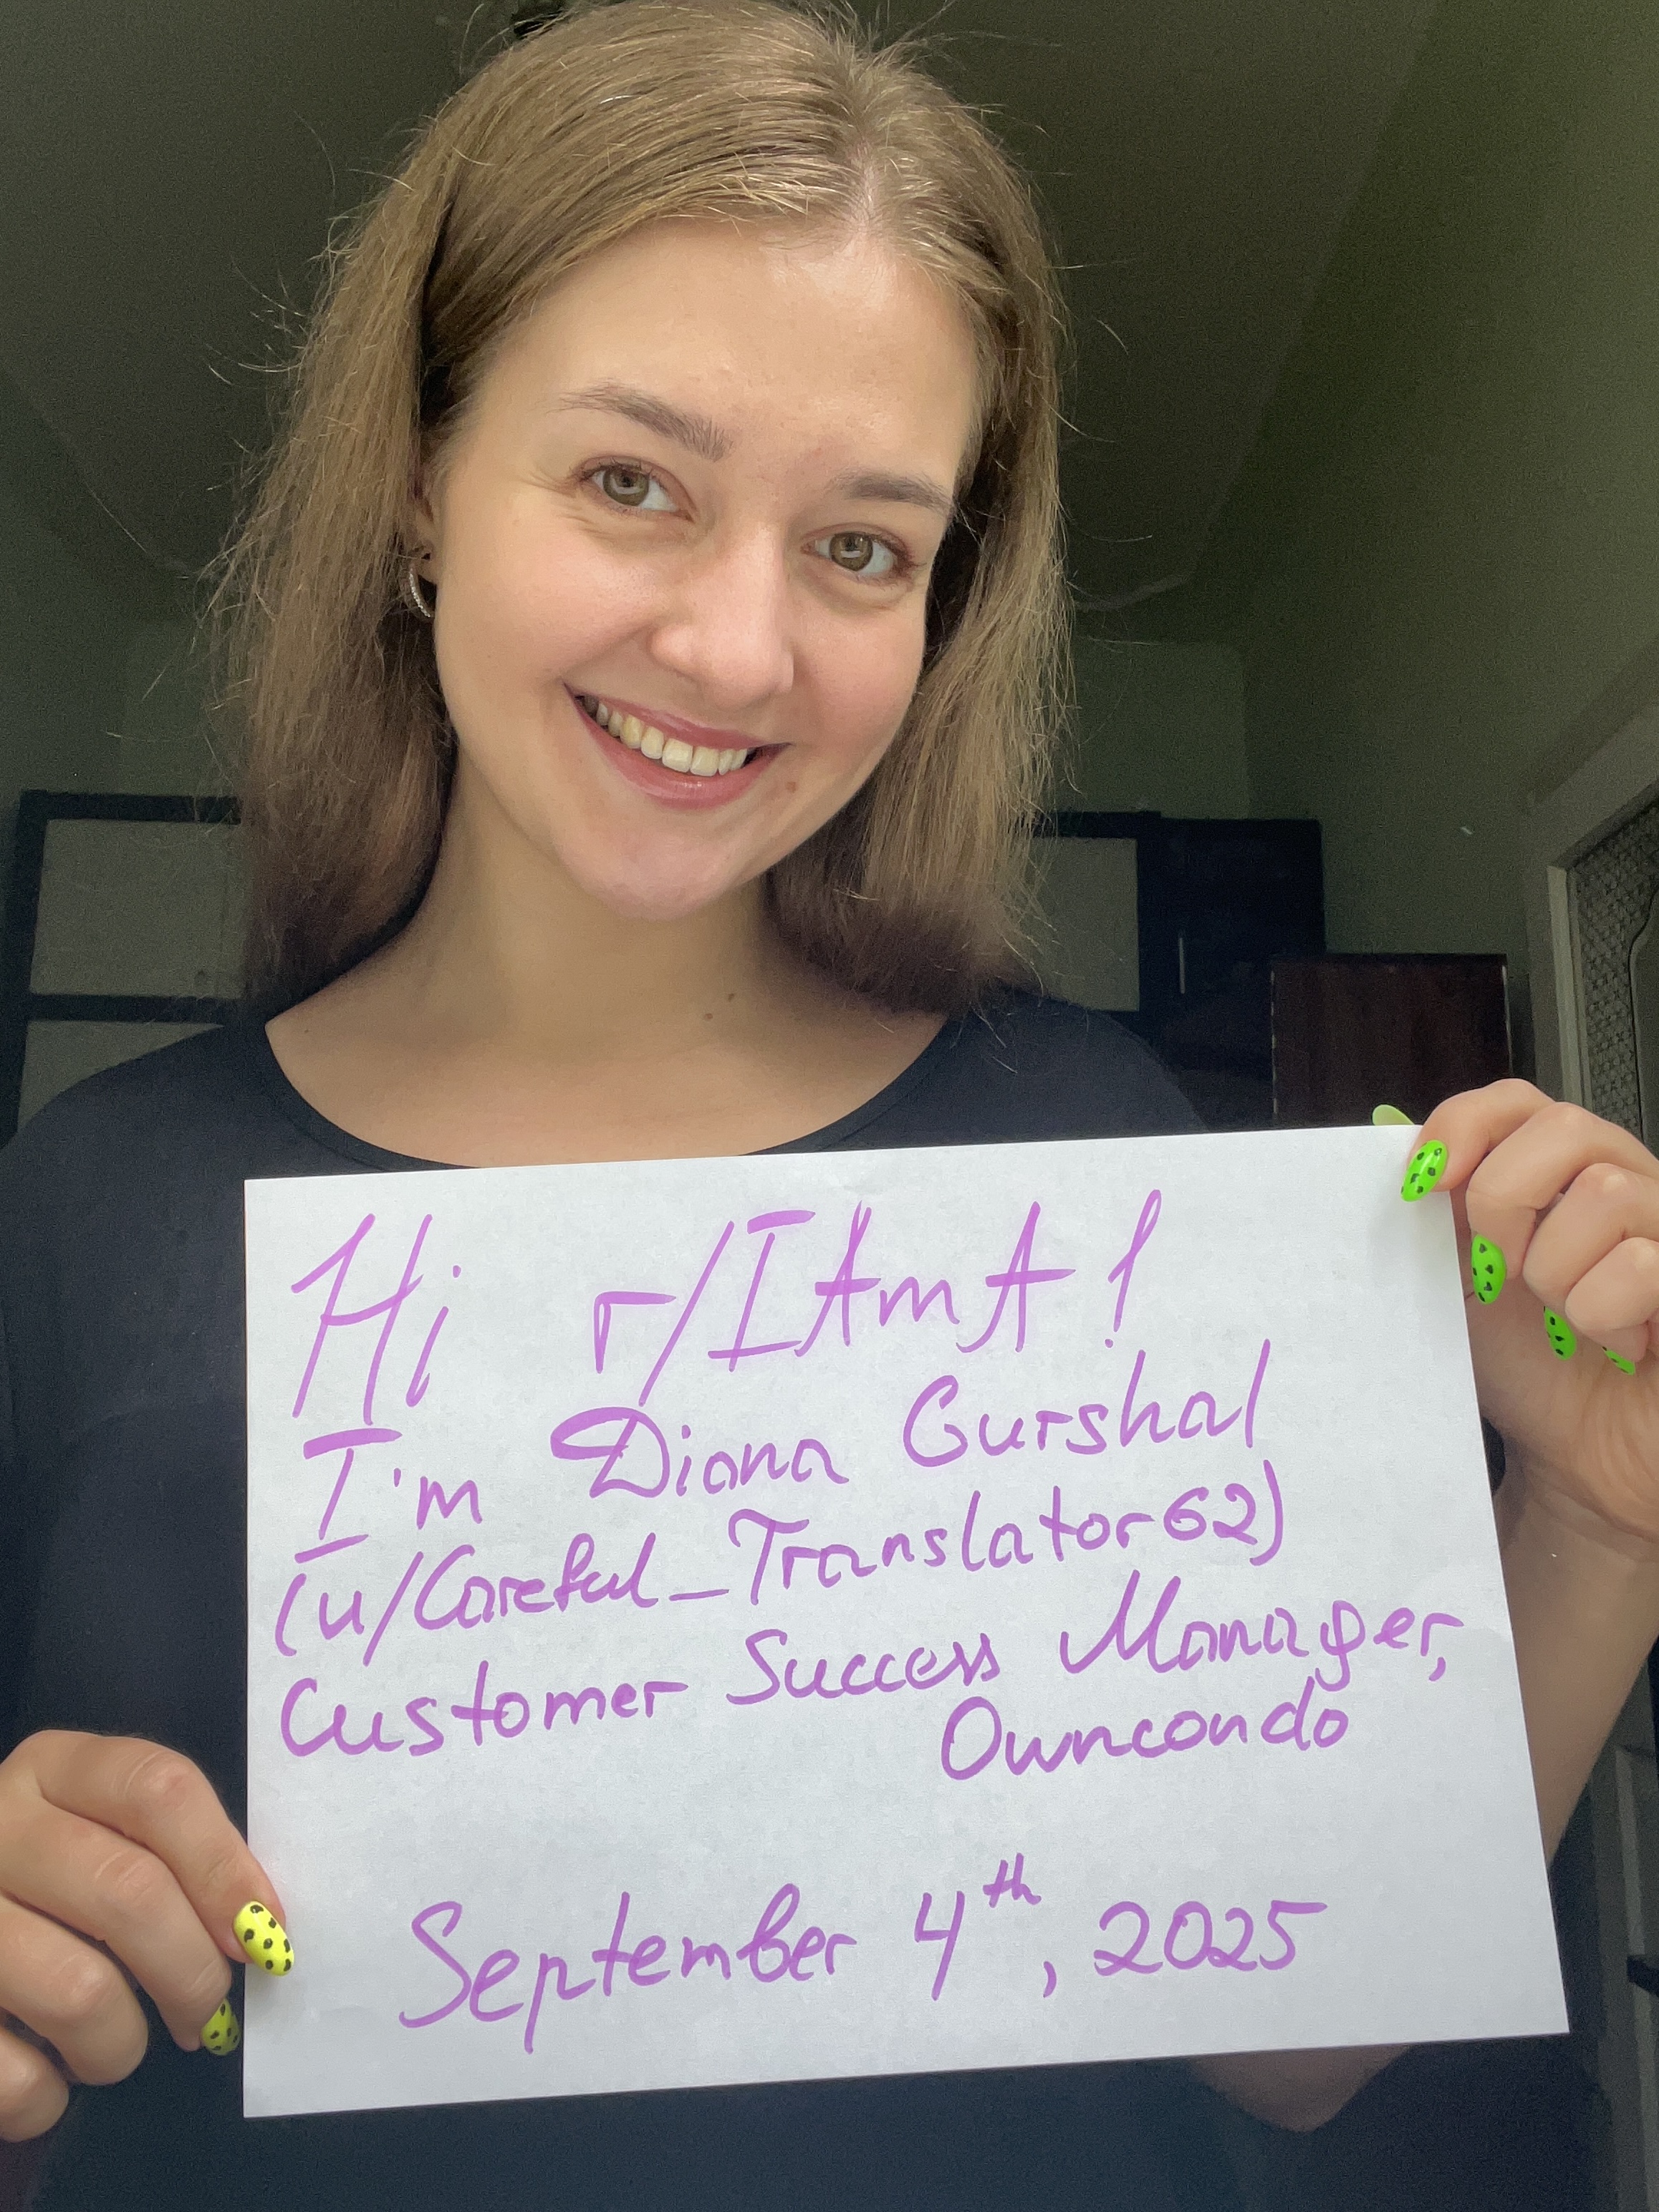 Hi r/IAmA!
I'm Diana Gurshal
(u/Careful_Translator62)
Customer Success Manager,
Owncondo
September 4th, 2025